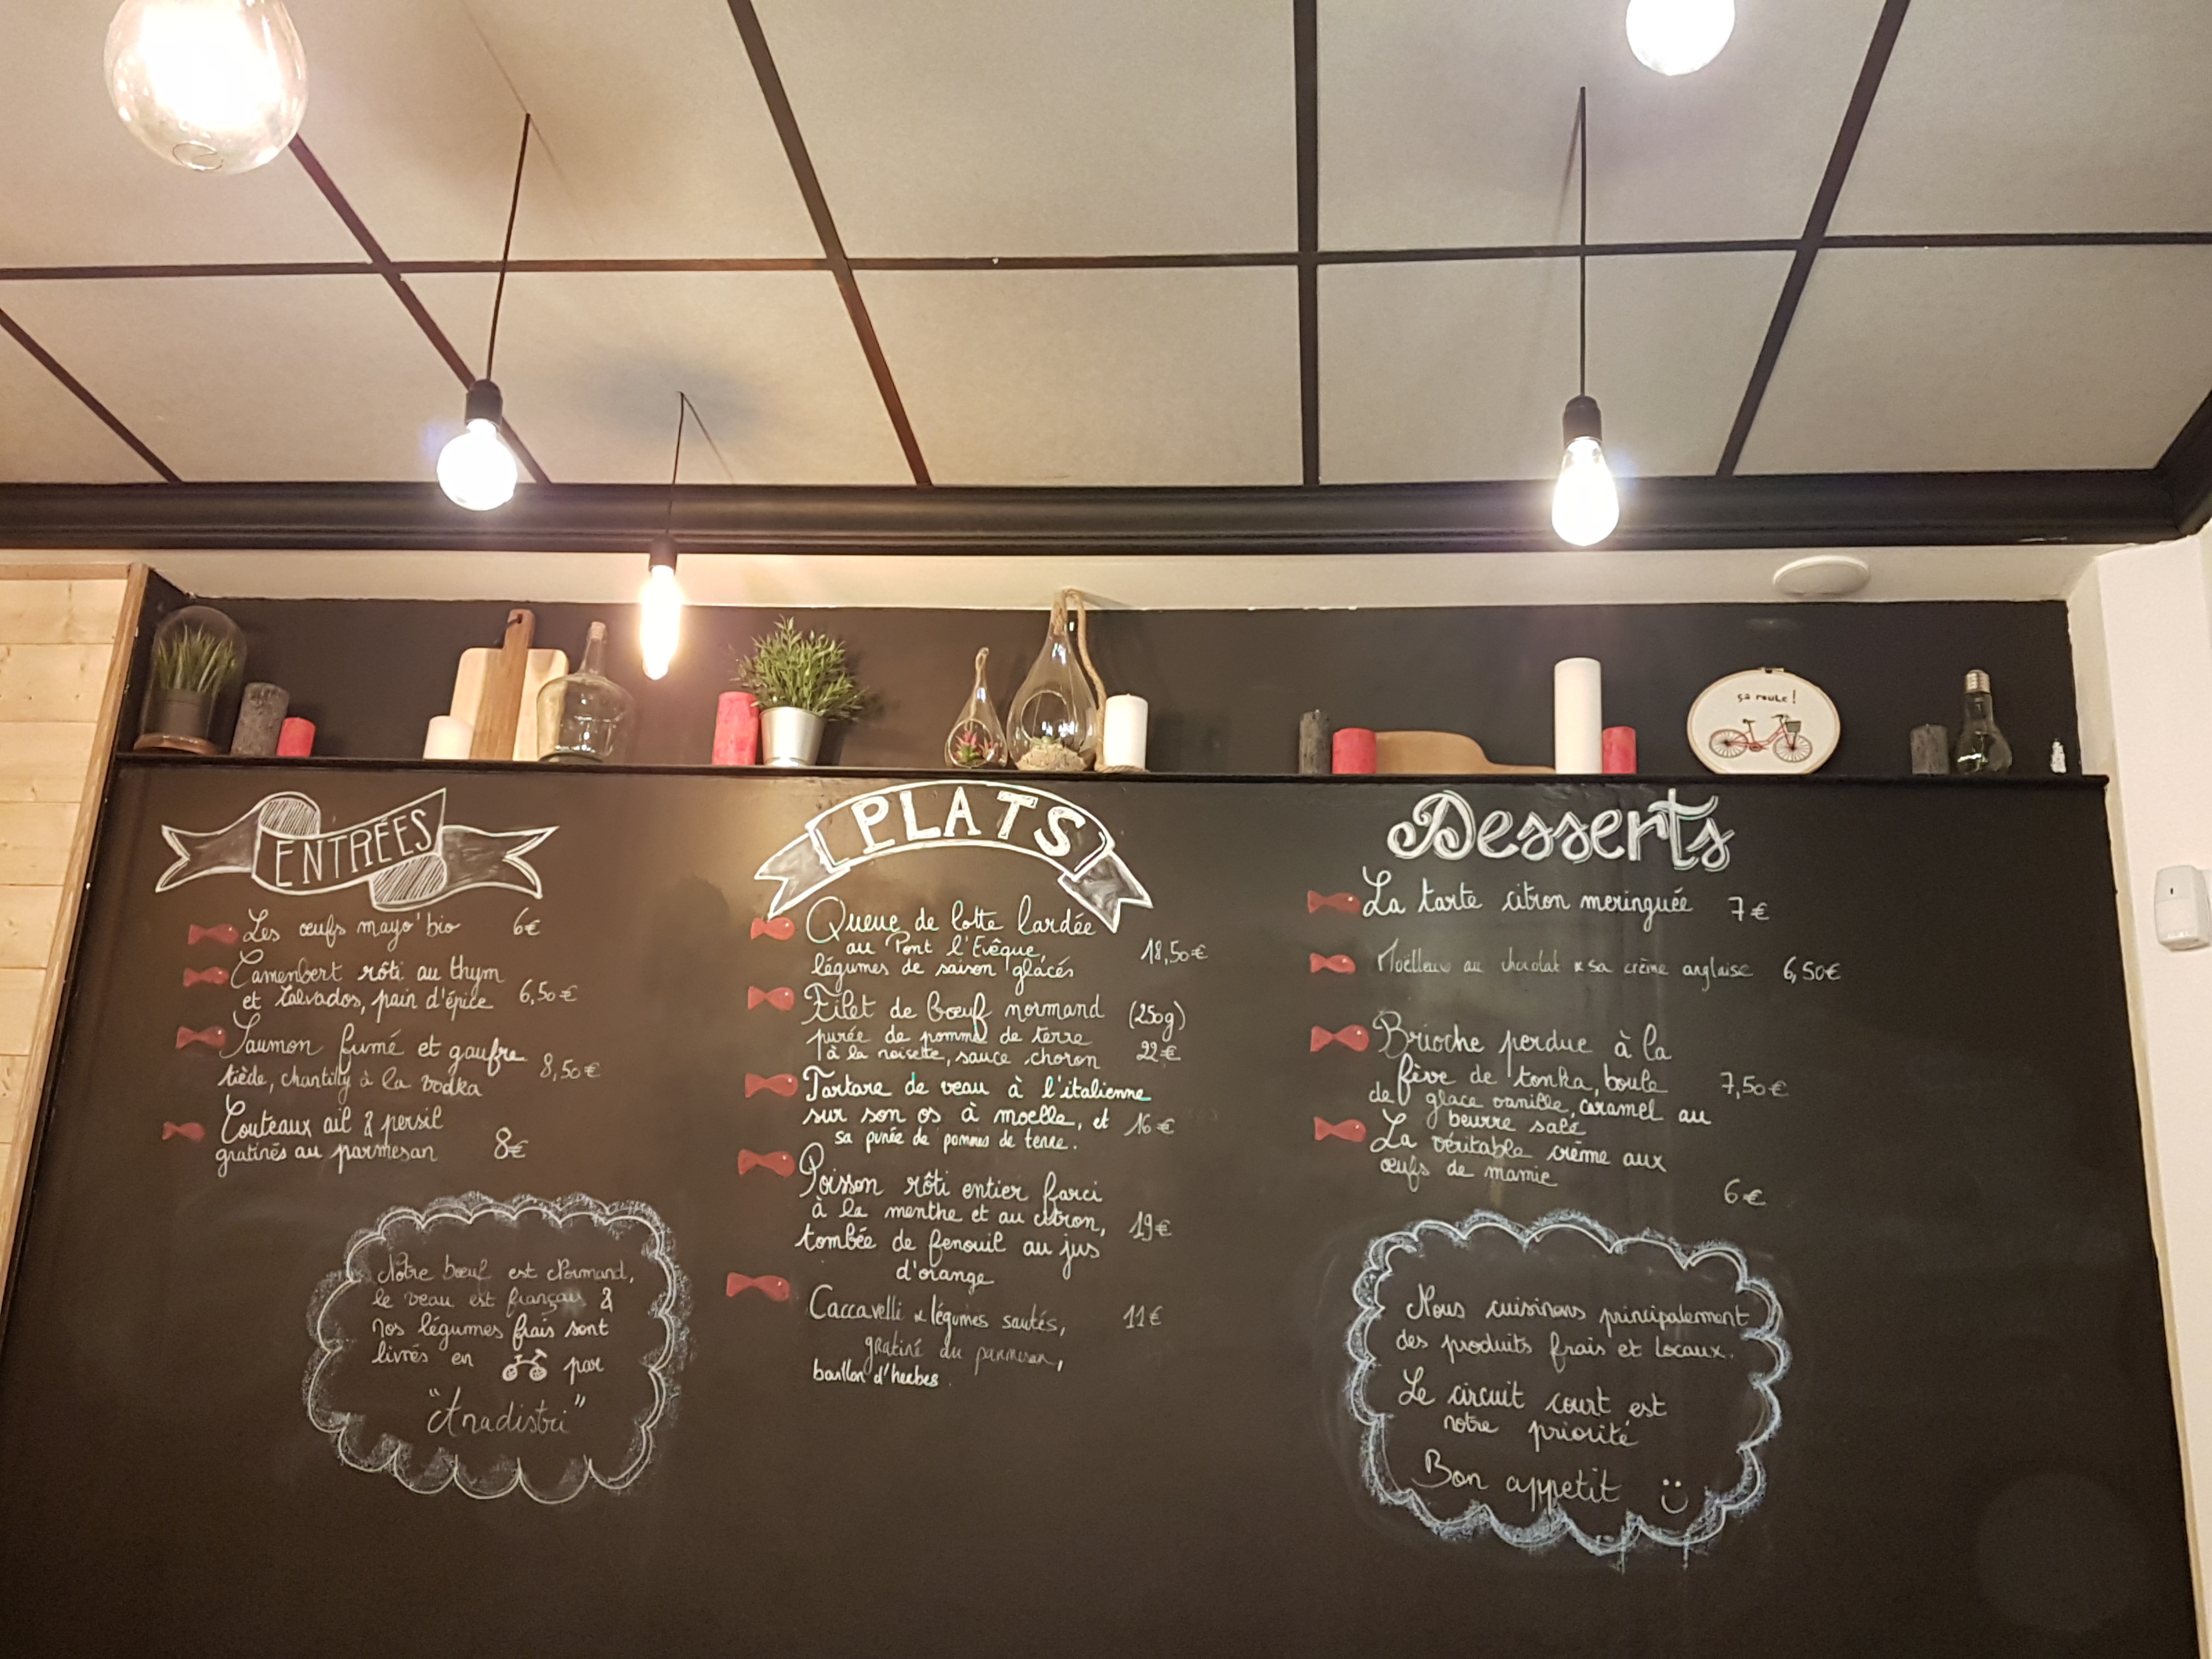 ça roule !
ENTRÉES
Les œufs mayo' bio 6€
Camembert rôti au thym
et Calvados, pain d'épice 6,50€
Saumon fumé et gaufre
tiède, chantilly à la vodka 8,50€
Couteaux ail & persil
gratinés au parmesan 8€
Notre bœuf est Normand,
le veau est français &
nos légumes frais sont
livrés en par
"Anadistri"
PLATS
Queue de lotte lardée
au Pont l'Evêque,
légumes de saison glacés 18,50€
Filet de bœuf normand (250g)
purée de pomme de terre
à la noisette, sauce choron 22€
Tartare de veau à l'italienne
sur son os à moelle, et 16€
sa purée de pommes de terre.
Poisson rôti entier farci
à la menthe et au citron, 19€
tombée de fenouil au jus
d'orange
Caccavelli & légumes sautés, 11€
gratiné au parmesan,
bouillon d'herbes.
Desserts
La tarte citron meringuée 7€
Moëlleux au chocolat & sa crème anglaise 6,50€
Brioche perdue à la
fève de tonka, boule 7,50€
de glace vanille, caramel au
beurre salé
La véritable crème aux
œufs de mamie
6€
Nous cuisinons principalement
des produits frais et locaux.
Le circuit court est
notre priorité
Bon appetit